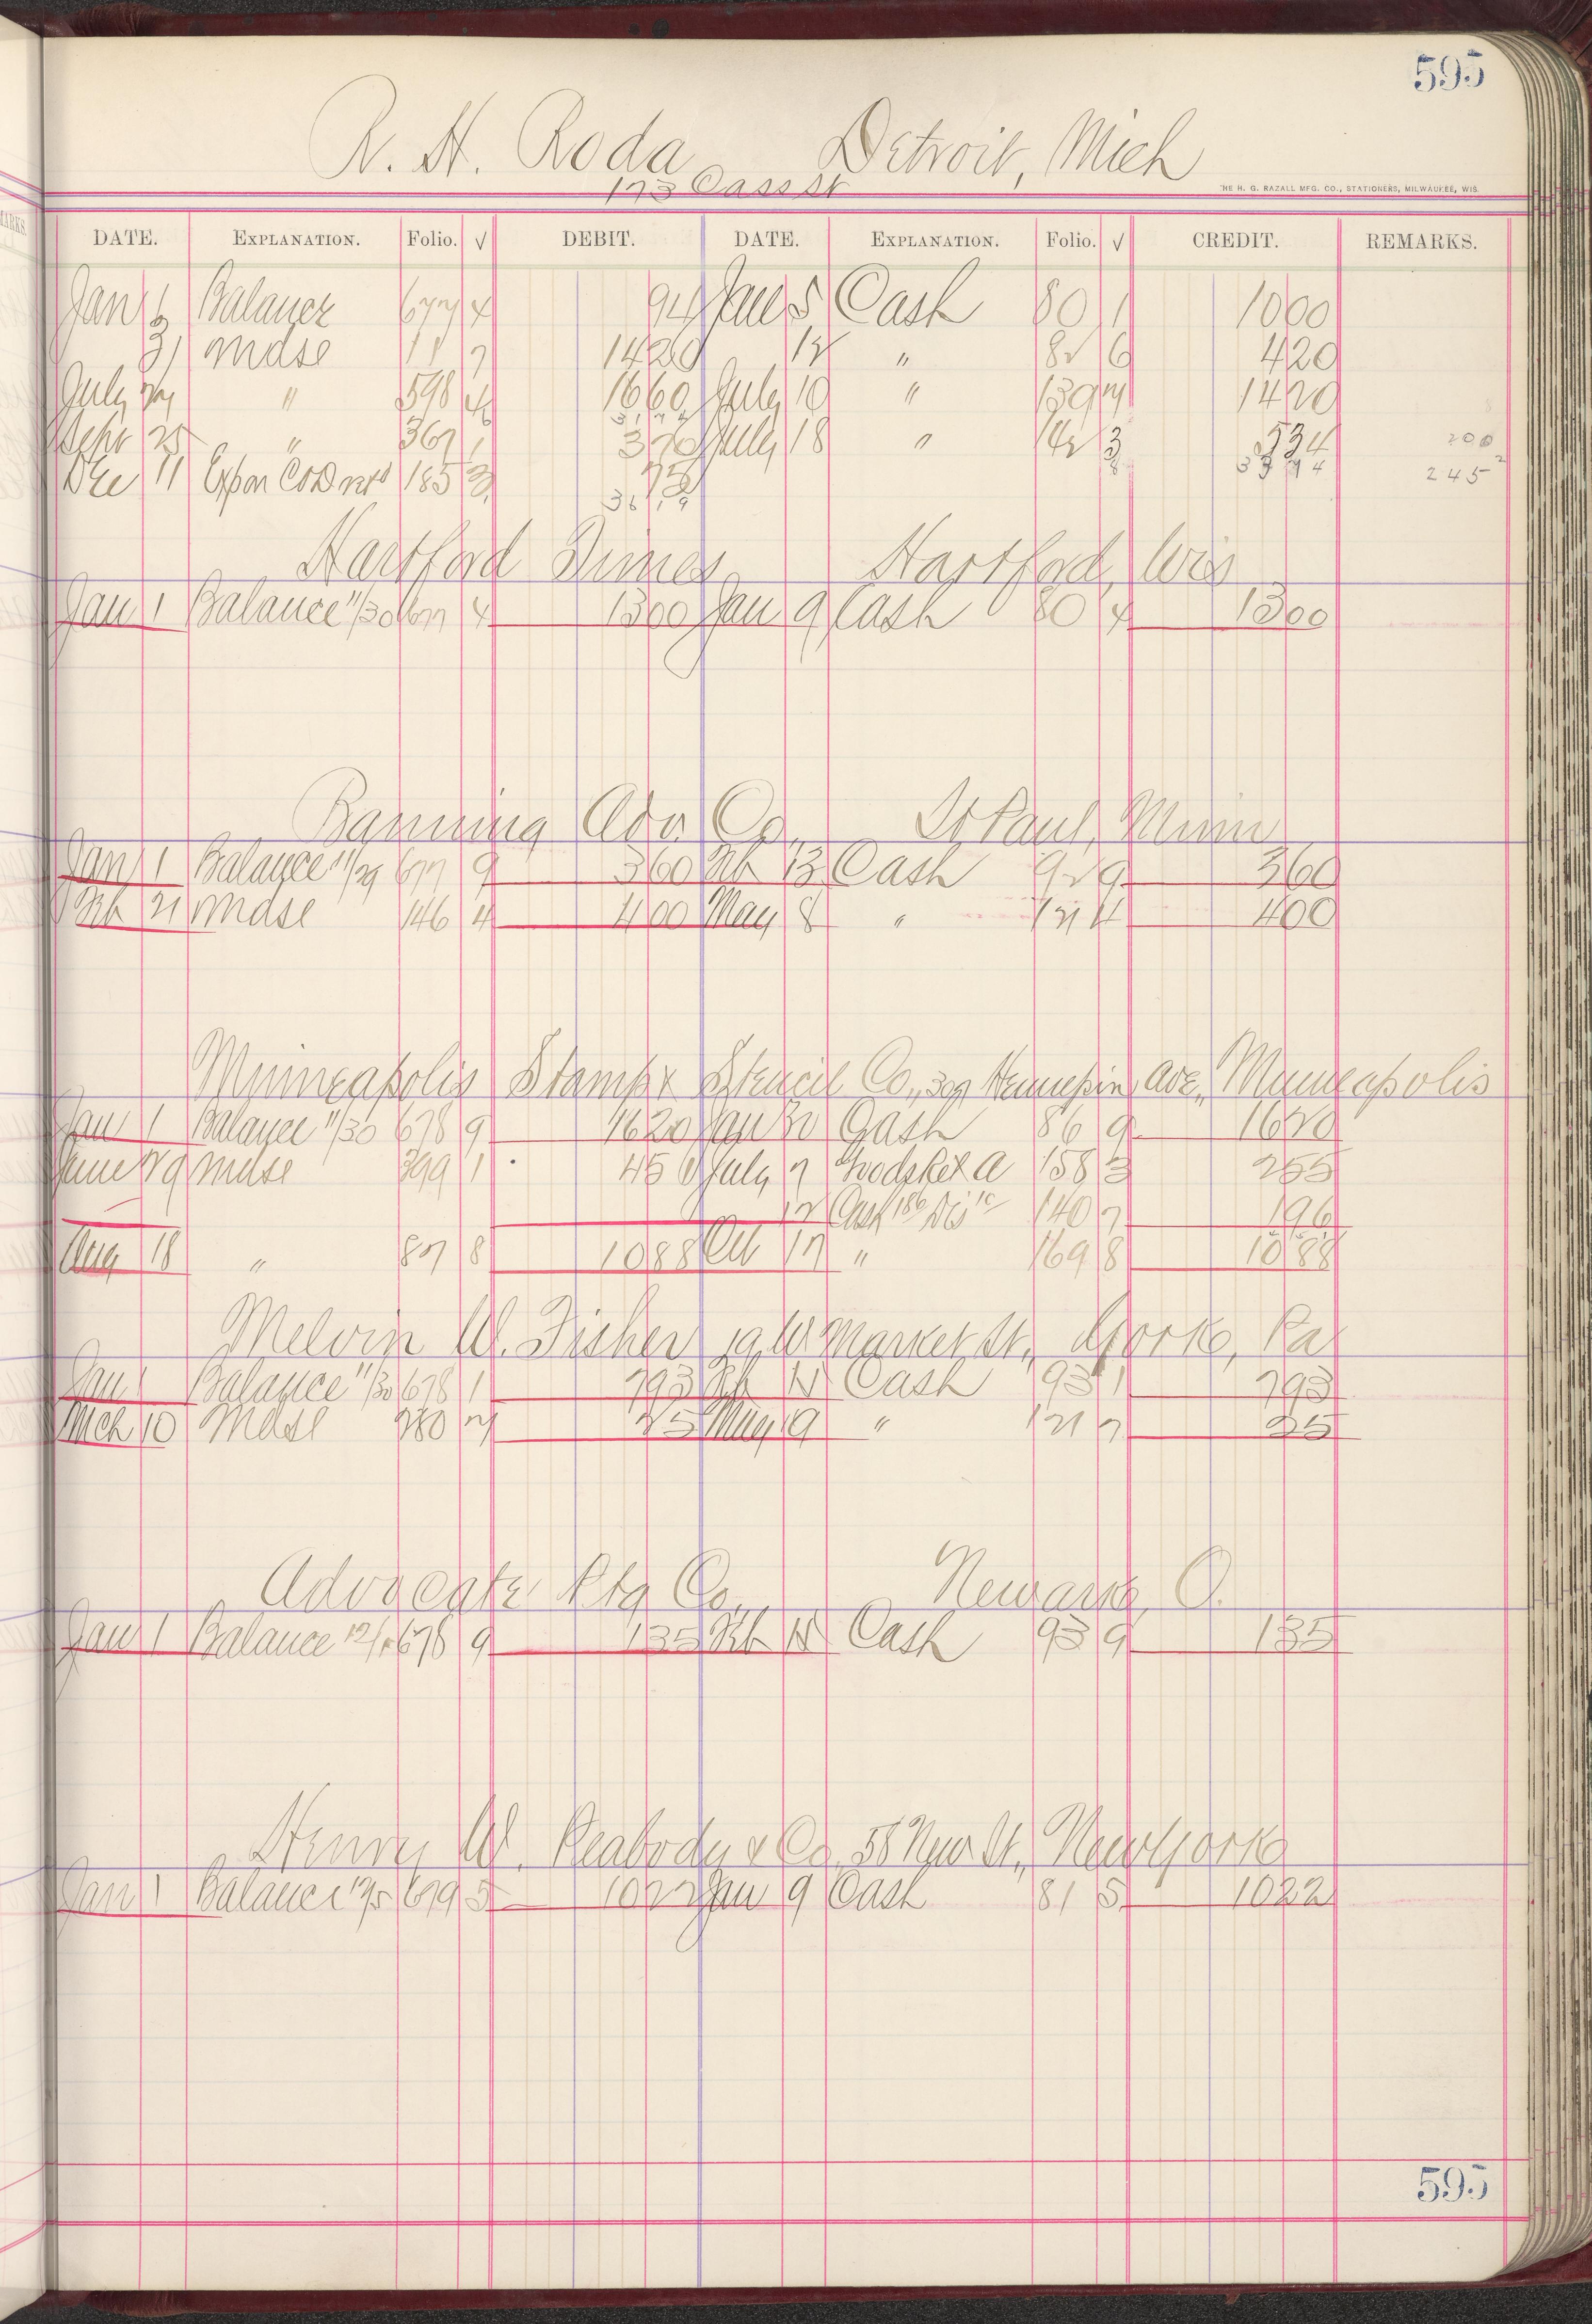 595
R. H. Roda Detroit, Mich
173 Cass St
THE H. G. RAZALL MFG. CO., STATIONERS, MILWAUKEE, WIS.
DATE. EXPLANATION. Folio. √ DEBIT. DATE. EXPLANATION. Folio. √ CREDIT. REMARKS.
Jan 1 Balance 677 4 94 Jan 5 Cash 80 1 1000
31 Mdse 11 7 1420 12 " 82 6 420
July " 598 4 1660 July 10 " 139 1420
Sept 25 " 367 1 320 July 18 " 142 3 534 200
Dec 11 185 3 75 3374 245
Hartford Times Hartford, Wis
Jan 1 Balance 11/30 677 4 1300 Jan 9 Cash 80 4 1300
Banning Adv Co. St Paul, Minn
Jan 1 Balance 11/29 677 9 360 Feb 13 Cash 92 9 360
Feb 21 Mdse 146 4 400 May 8 " 121 4 400
Minneapolis Stamp & Stencil Co., 309 Hennepin Ave., Minneapolis
Jan 1 Balance 11/30 678 9 1620 Jan 30 Cash 86 9 1620
June 29 Mdse 399 1 450 July 7 158 3 255
12 Cash 186 Dis 10 140 7 196
Aug 18 " 87 8 1088 Oct 17 " 169 8 1088
Melvin W. Fisher 19 W Market St., York, Pa
Jan 1 Balance 11/30 678 1 793 Feb 15 Cash 93 1 793
Mch 10 Mdse 280 7 25 May 9 " 121 7 25
Advocate Ptg Co. Newark, O.
Jan 1 Balance 678 9 135 Feb 15 Cash 93 9 135
Henry W. Peabody & Co. 58 New St., New York
Jan 1 Balance 679 5 1022 Jan 9 Cash 81 5 1022
595